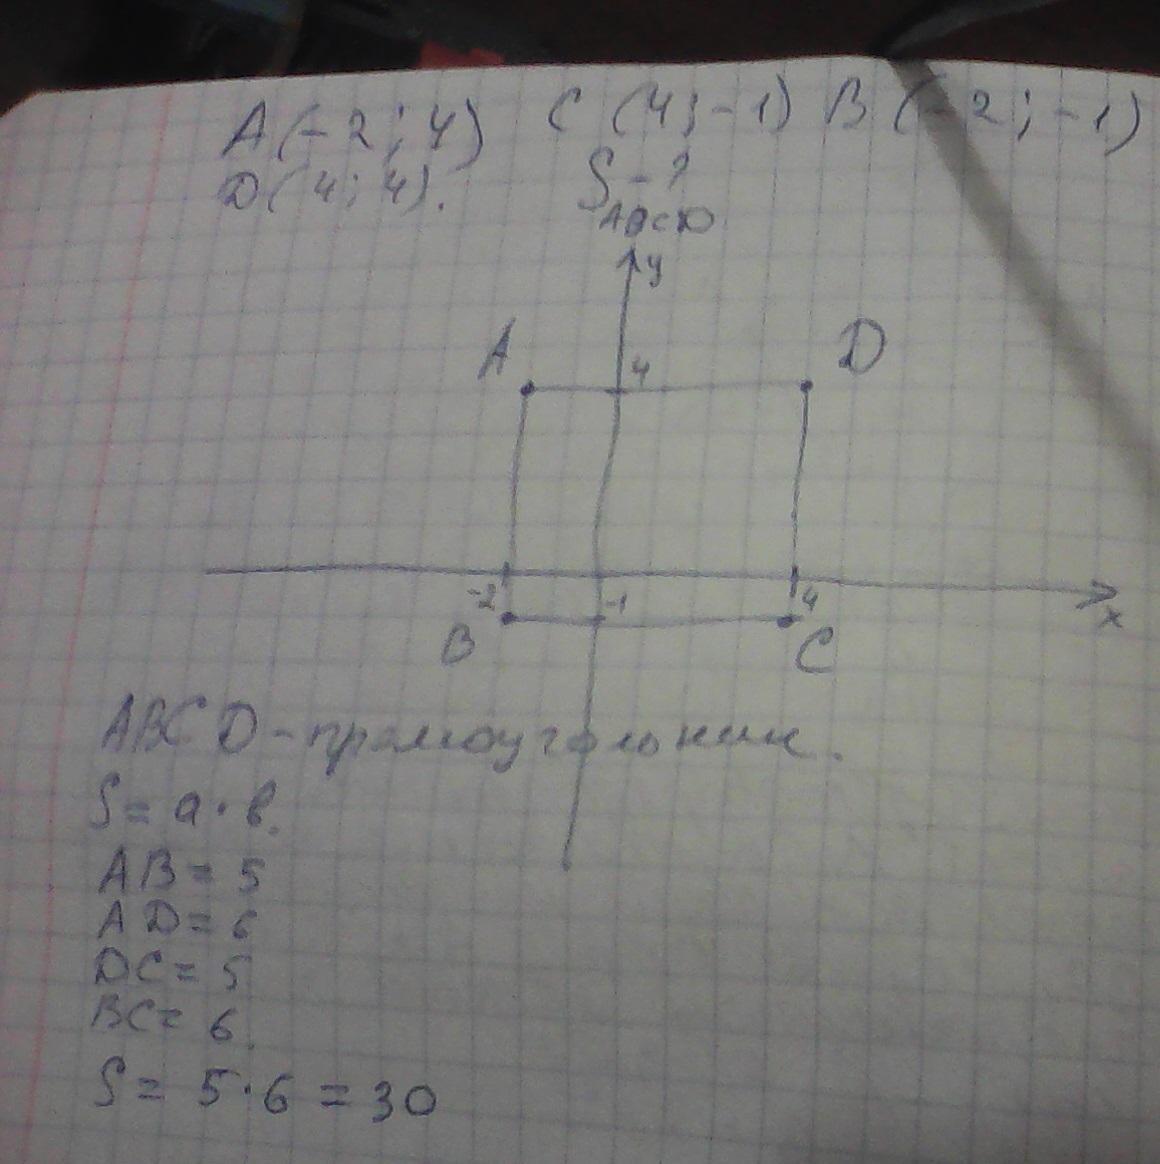 A(-2; 4) C (4; -1) B (-2; -1)
D(4; 4). S ABCD - ?
y
A D
4
-2 -1 4
x
B C
ABCD - прямоугольник.
S = a · b.
AB = 5
AD = 6
DC = 5
BC = 6.
S = 5 · 6 = 30